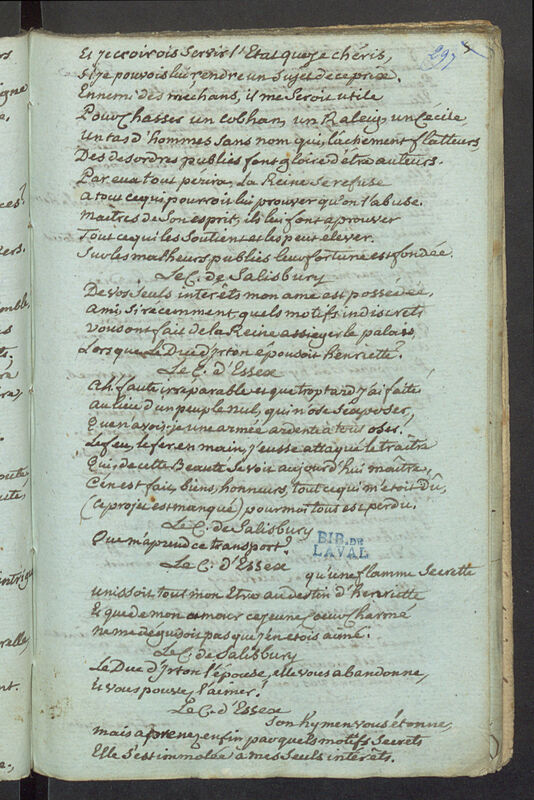 297
Et je croirois servir l'Etat que je chéris,
Si je pouvois lui rendre un Sujet de ce prix.
Ennemi des méchans, il me seroit utile
Pour chasser un cobhan, un Raleig, un Cécile
Un tas d'hommes sans nom qui, lâchement flatteurs
Des desordres publics font gloire d'etre auteurs.
Par eux tout périra, La Reine se refuse
a tout ce qui pourroit lui prouver qu'on l'abuse.
maitres de son esprit, ils lui font aprouver
Tout ce qui les Soutient et les peut elever.
Sur les malheurs publics leur fortune est fondée.
Le C. de Salisbury
De vos seuls intérêts mon ame est possédée,
ami, si récemment, quels motifs indiscrets
Vous ont fait de la Reine assieger le palais,
Lorsque Le Duc d'yrton épousoit henriette?
Le C. d'Essex
ah! faute irréparable et que trop tard j'ai faite
au lieu d'un peuple nul, qui n'ose s'exposer,
Que n'avois-je une armée ardente a tout oser!
Le feu, le fer en main, j'eusse attaqué le traître
Qui de cette Beauté se voit aujourd'hui maître,
C'en est fait, biens, honneurs, tout ce qui m'étoit dû,
(ce projet est manqué) pour moi tout est perdu.
Le C. de Salisbury
Que m'aprend ce transport?
BIB. DE
LAVAL
Le C. d'Essex
qu'une flamme Secrette
unissoit tout mon Etre au destin d'henriette
Et que de mon amour ce jeune coeur charmé
ne me déguisoit pas que j'en étois aimé.
Le C. de Salisbury
Le Duc d'yrton l'épouse, elle vous abandonne,
Et vous pouvez l'aimer!
Le C. d'Essex
Son hymen vous étonne,
mais aprenez enfin par quels motifs Secrets
Elle s'est immolée a mes seuls intérêts.